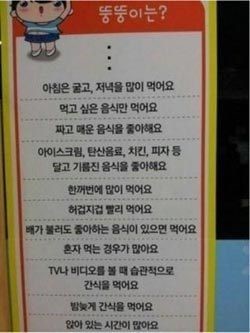 뚱뚱이는?
아침은 굶고, 저녁을 많이 먹어요
먹고 싶은 음식만 먹어요
짜고 매운 음식을 좋아해요
아이스크림, 탄산음료, 치킨, 피자 등
달고 기름진 음식을 좋아해요
한꺼번에 많이 먹어요
허겁지겁 빨리 먹어요
배가 불러도 좋아하는 음식이 있으면 먹어요
혼자 먹는 경우가 많아요
TV나 비디오를 볼 때 습관적으로
간식을 먹어요
밤늦게 간식을 먹어요
앉아 있는 시간이 많아요